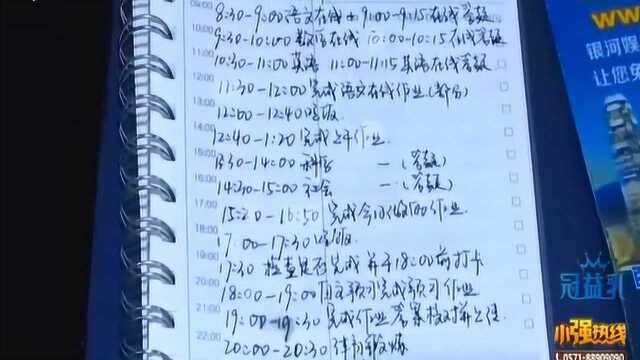 09:00
8:30-9:00语文在线+9:00-9:15在线答疑
9:30-10:00数学在线 10:00-10:15在线答疑
10:30-11:00英语 11:00-11:15英语在线答疑
12:00
11:30-12:00完成语文在线作业(部分)
13:00
12:00-12:40吃饭
14:00
12:40-1:20完成上午作业
15:00
13:30-14:00科学 一(答疑)
16:00
14:30-15:00社会 一(答疑)
17:00
15:20-16:50完成今日做的作业
18:00
17:00-17:30吃饭
19:00
17:30检查是否完成并于18:00前打卡
20:00
18:00-19:00自主预习完成预习作业
21:00
19:00-19:30完成作业答案核对并上传
22:00
20:00-20:30体育锻炼
WW
银河娱
让您免
冠益乳
小强热线
0571-88909090